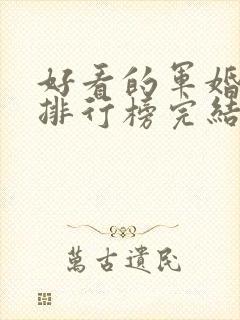 好看的军婚
排行榜完結
萬古遺民